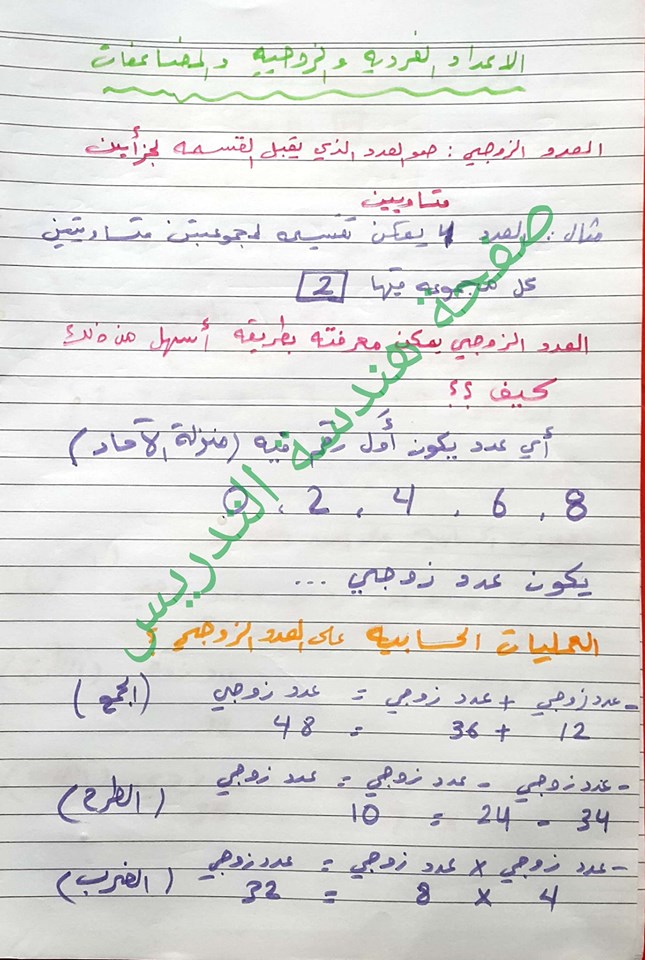 الاعداد الفرديه والزوجيه والمضاعفات
العدد الزوجي : هو العدد الذي يقبل القسمه لجزأين
متساويين
مثال : العدد 4 يمكن تقسيمه لمجموعتين متساويتين
كل مجموعه فيها 2
العدد الزوجي يمكن معرفته بطريقه أسهل من ذلك
كيف ؟؟
أي عدد يكون أول رقم فيه (منزلة الآحاد)
8 ، 6 ، 4 ، 2 ، 0
يكون عدد زوجي ...
العمليات الحسابيه على العدد الزوجي :
- عدد زوجي + عدد زوجي = عدد زوجي (الجمع)
12 + 36 = 48
- عدد زوجي - عدد زوجي = عدد زوجي (الطرح)
34 - 24 = 10
- عدد زوجي × عدد زوجي = عدد زوجي (الضرب)
4 × 8 = 32
صفحة هندسة التدريس